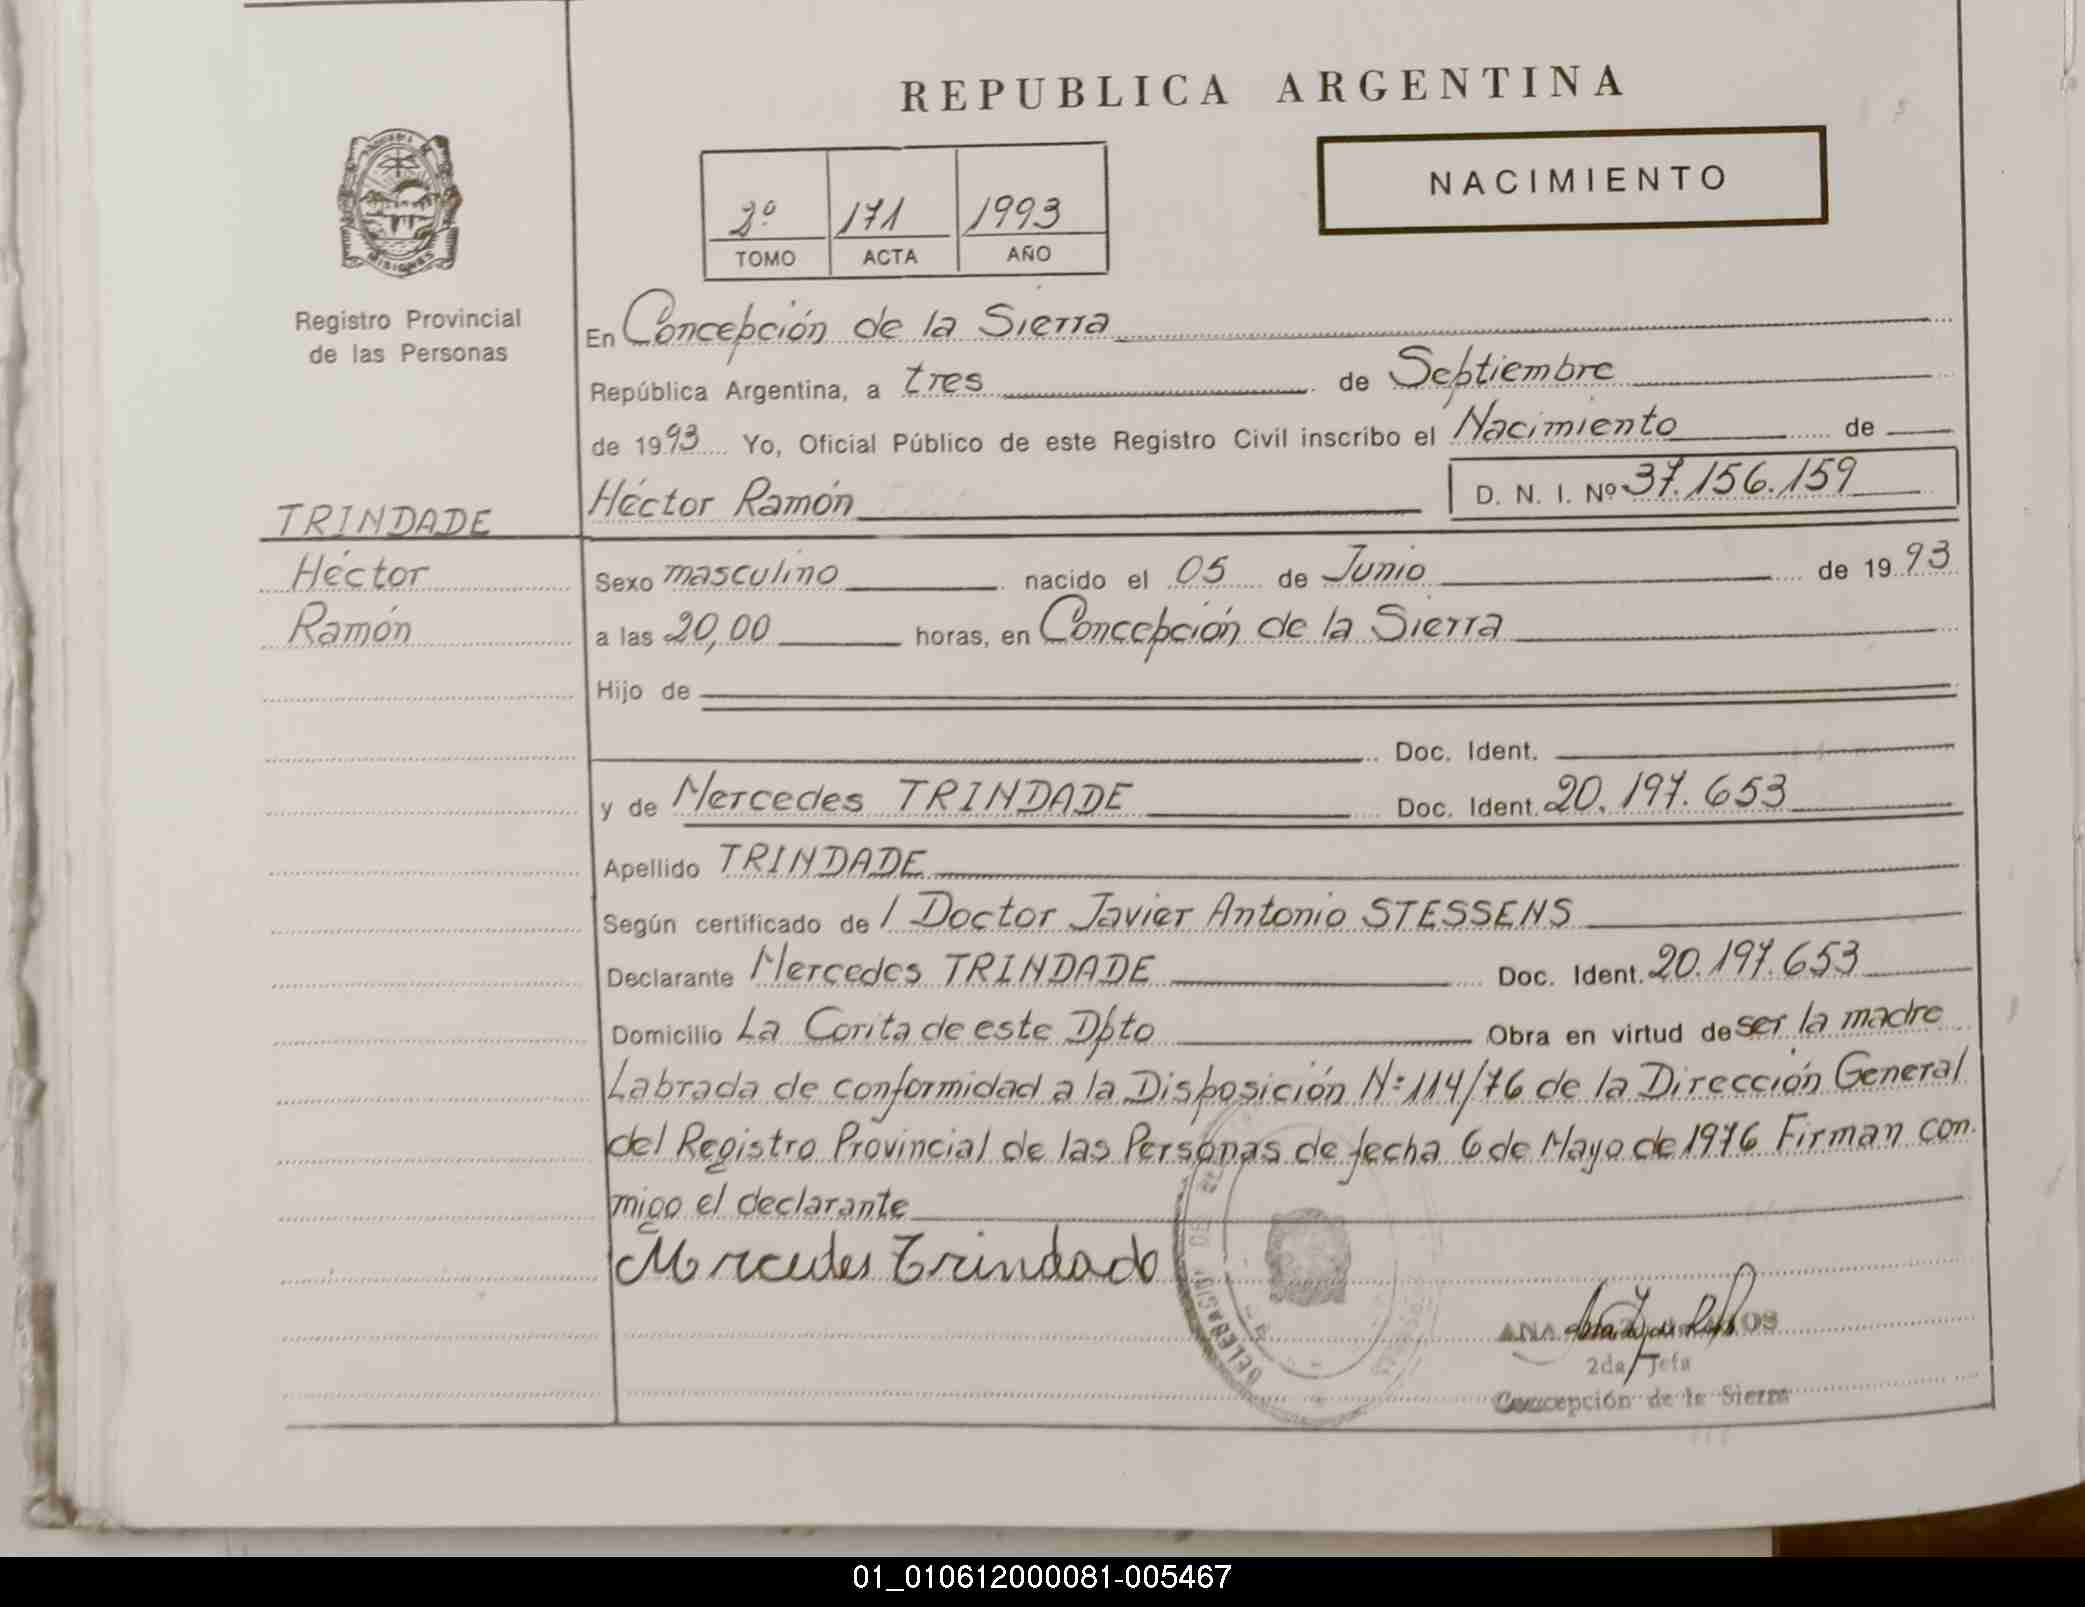 REPUBLICA ARGENTINA
NACIMIENTO
2º 171 1993
TOMO ACTA AÑO
MISIONES
Registro Provincial
de las Personas
En Concepción de la Sierra
República Argentina, a tres de Septiembre
de 1993 Yo, Oficial Público de este Registro Civil inscribo el Nacimiento de
Héctor Ramón D. N. I. Nº 37.156.159
TRINDADE
Héctor
Ramón
Sexo masculino nacido el 05 de Junio de 1993
a las 20,00 horas, en Concepción de la Sierra
Hijo de
Doc. Ident.
y de Mercedes TRINDADE Doc. Ident. 20.197.653
Apellido TRINDADE
Según certificado de / Doctor Javier Antonio STESSENS
Declarante Mercedes TRINDADE Doc. Ident. 20.197.653
Domicilio La Corita de este Dpto Obra en virtud de ser la madre
Labrada de conformidad a la Disposición Nº 114/76 de la Dirección General
del Registro Provincial de las Personas de fecha 6 de Mayo de 1976 Firman con
migo el declarante
Mercedes Trindade
ANA
2da Jefa
Concepción de la Sierra
01_010612000081-005467